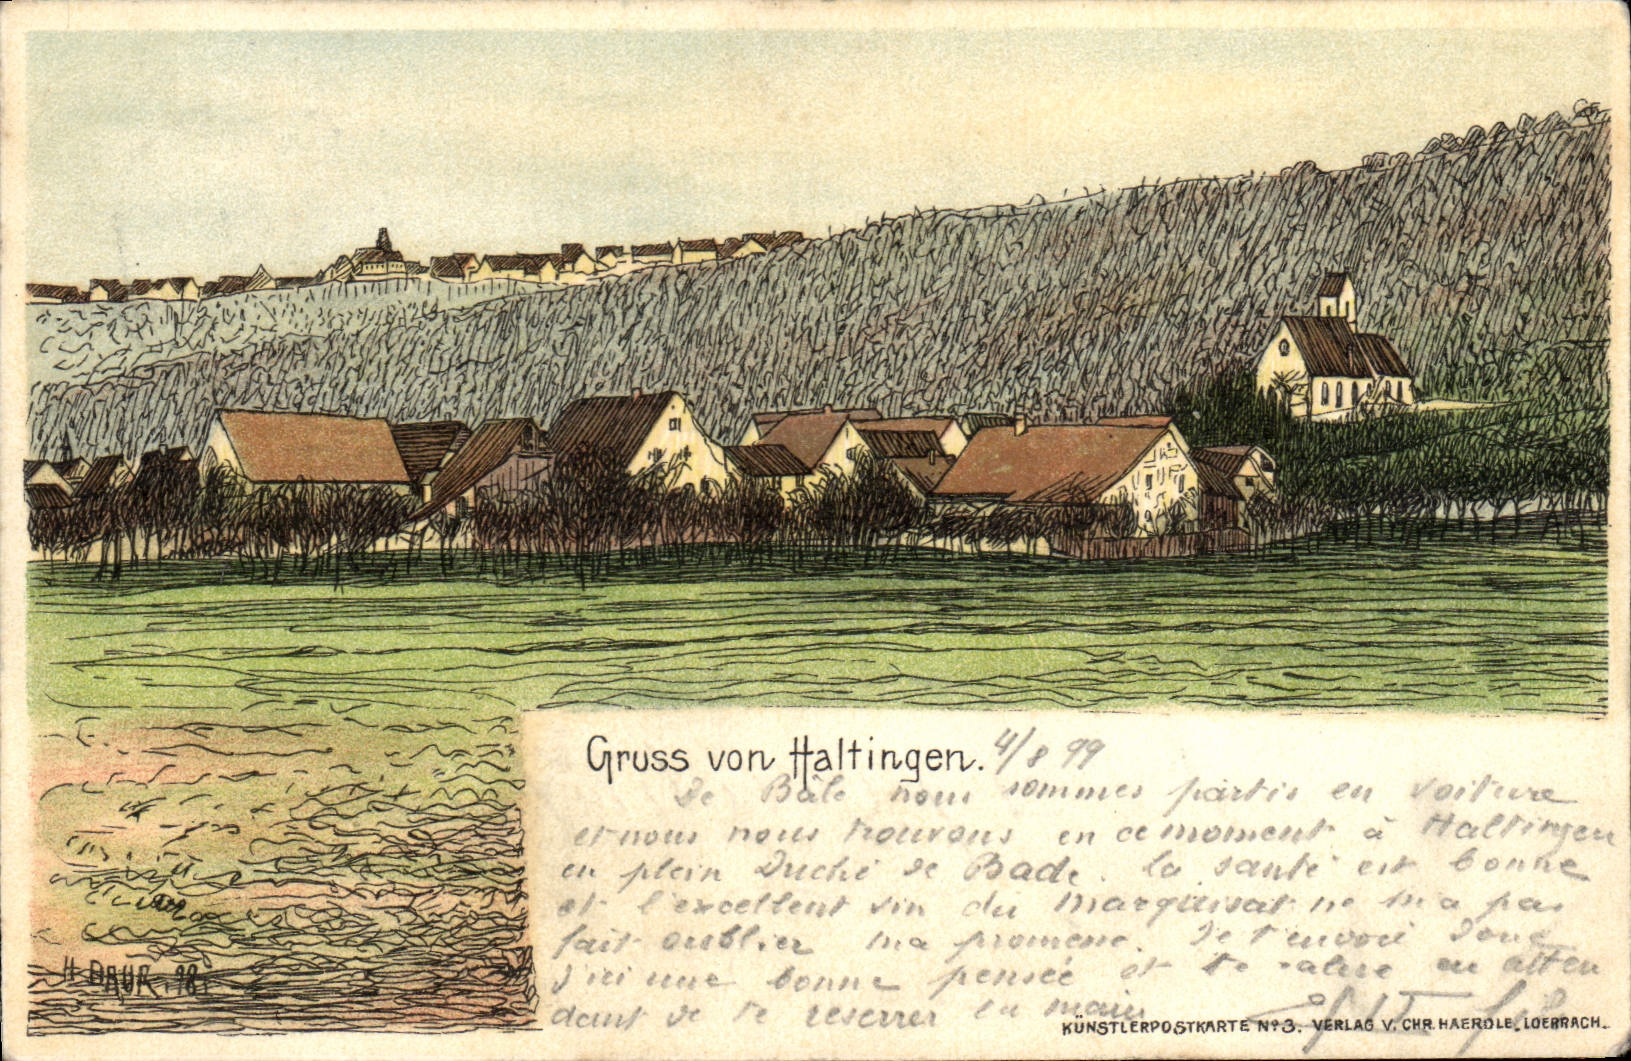 Gruss von Haltingen. 4/8 99
De Bâle nous sommes partis en voiture
et nous nous trouvons en ce moment à Haltingen
en plein Duché de Bade. la santé est bonne
et l'excellent vin du Marquisat ne m'a pas
fait oublier ma promesse. Je t'envoie donc
d'ici une bonne pensée et te salue en atten
dant de te reserrer la main
H. DAUR. 98.
KÜNSTLERPOSTKARTE Nº3. VERLAG V. CHR. HAERDLE, LOERRACH.